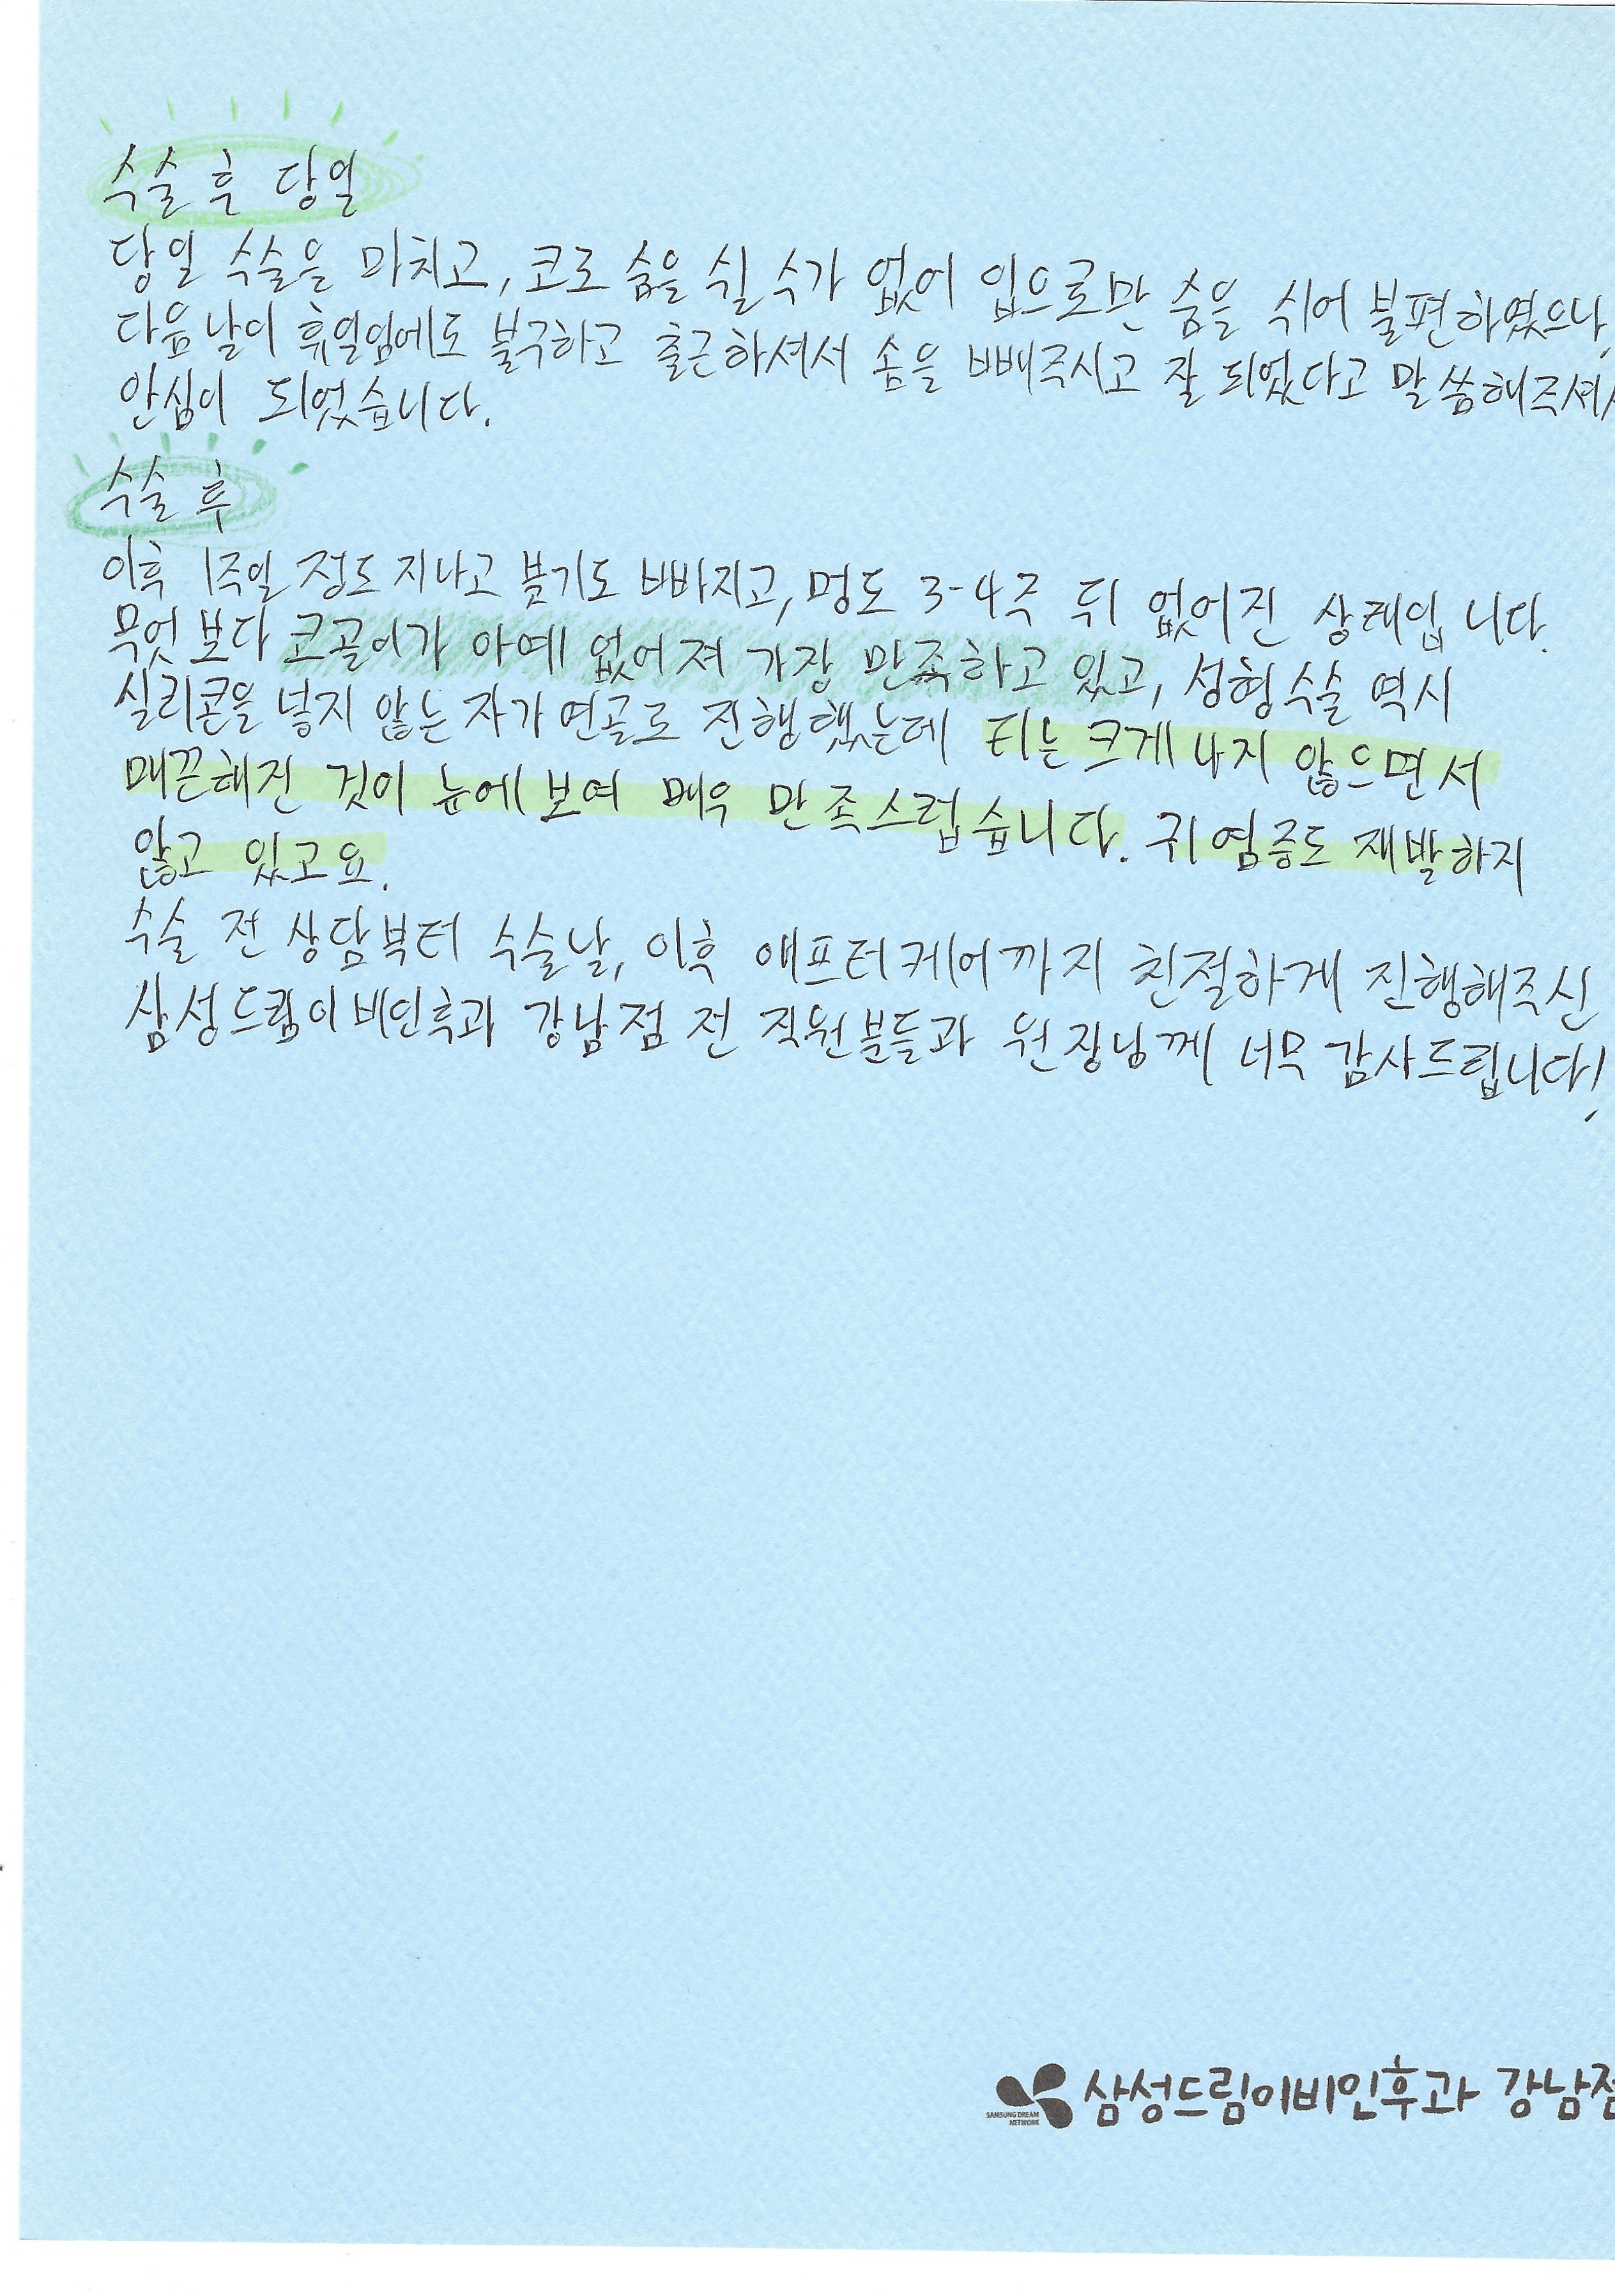 수술 후 당일
당일 수술을 마치고, 코로 숨을 쉴 수가 없어 입으로만 숨을 쉬어 불편하였으나,
다음날이 휴일임에도 불구하고 출근하셔서 솜을 빼주시고 잘 되었다고 말씀해주셔서
안심이 되었습니다.
수술 후
이후 1주일 정도 지나고 붓기도 빠지고, 멍도 3-4주 뒤 없어진 상태입니다.
무엇보다 코골이가 아예 없어져 가장 만족하고 있고, 성형수술 역시
실리콘을 넣지 않는 자가연골로 진행했는데 티는 크게 나지 않으면서
매끈해진 것이 눈에 보여 매우 만족스럽습니다. 귀 염증도 재발하지
않고 있고요.
수술 전 상담부터 수술날, 이후 애프터케어까지 친절하게 진행해주신
삼성드림이비인후과 강남점 전 직원분들과 원장님께 너무 감사드립니다!
SAMSUNG DREAM
NETWORK
삼성드림이비인후과 강남점